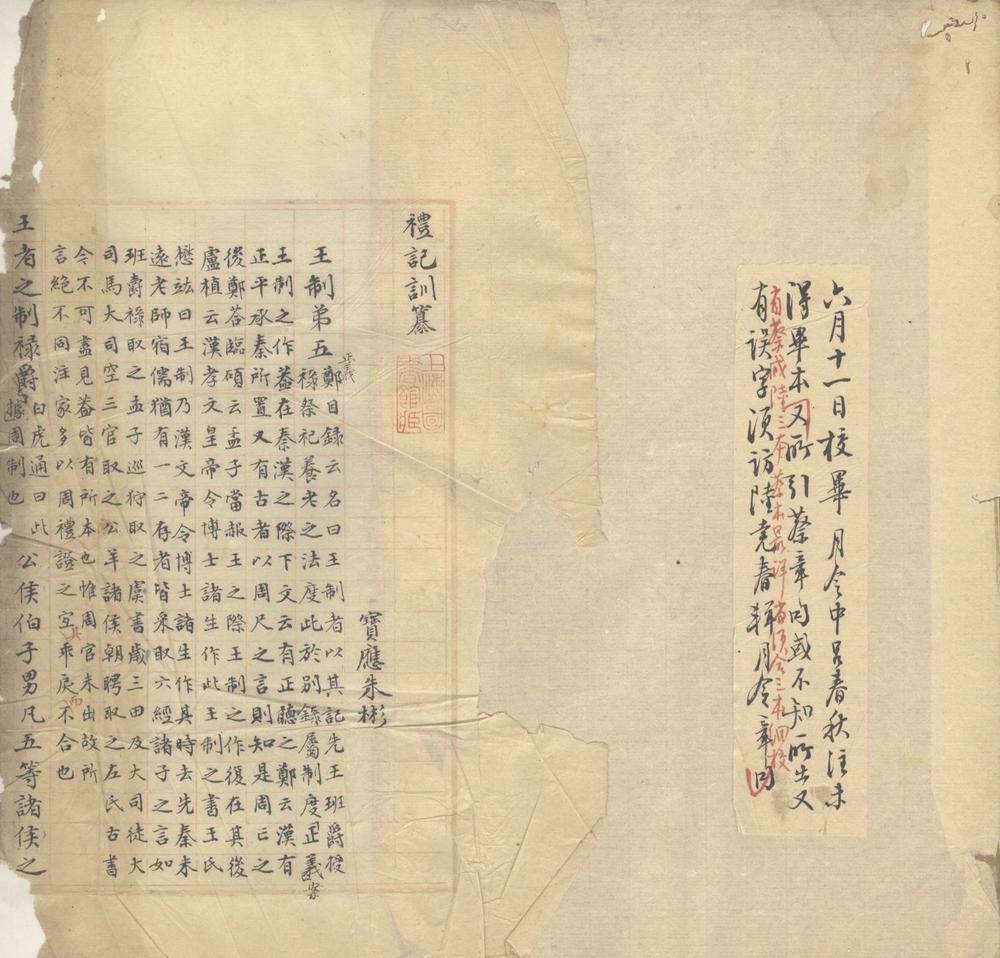 六月十一日校畢 月令中呂春秋注未
得畢本又所引蔡章句或不知所出又
有蔡臧陸三本蔡本最詳須合三本細校
有誤字須訪陸堯春輯月令章句
禮記訓纂
上海圖書館藏
寶應朱彬
王制弟五 正義鄭目録云名曰王制者以其記先王班爵授
禄祭祀養老之法度此於別錄屬制度正義案
王制之作蓋在秦漢之際下文云有正聽之鄭云漢有
正平承秦所置又有古者以周尺之言則知是周亡之
後鄭荅臨碩云孟子當赧王之際王制之作復在其後
盧植云漢孝文皇帝令博士諸生作此王制之書王氏
懋竑曰王制乃漢文帝令博士諸生作其時去先秦未
遠老師宿儒猶有一二存者皆采取六經諸子之言如
班爵禄取之孟子巡狩取之虞書歲三田及大司徒大
司馬大司空三官取之公羊諸侯朝聘取之左氏古書
今不可盡見蓋皆有所本也惟周官未出故所
言絶不同注家多以周禮證之宜其乖戾而不合也
王者之制禄爵 白虎通曰此據周制也 公侯伯子男凡五等諸侯之